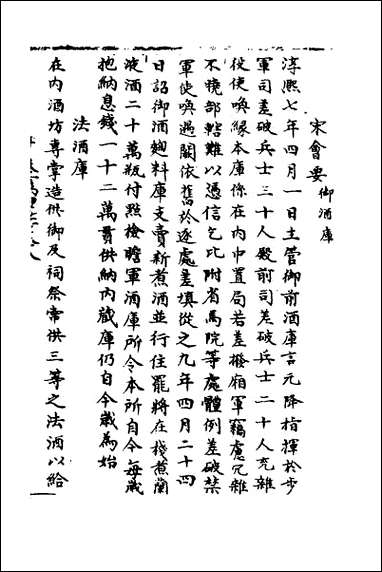 宋會要 御酒庫
淳熙七年四月一日主管御前酒庫言元降指揮於步
軍司差破兵士三十人殿前司差破兵士二十人充雜
役使喚緣本庫係在內中置局若差撥廂軍竊慮冗雜
不曉部轄難以憑信乞比附省馬院等處體例差破禁
軍使喚遇闕依舊於逐處差填從之九年四月二十四
日詔御酒麴料庫支賣新煮酒並行住罷將在棧煮蘭
液酒二十萬瓶付點檢贍軍酒庫所令本所自今每歲
抱納息錢一十二萬貫供納內藏庫仍自今歲為始
法酒庫
在內酒坊專掌造供御及祠祭常供三等之法酒以給